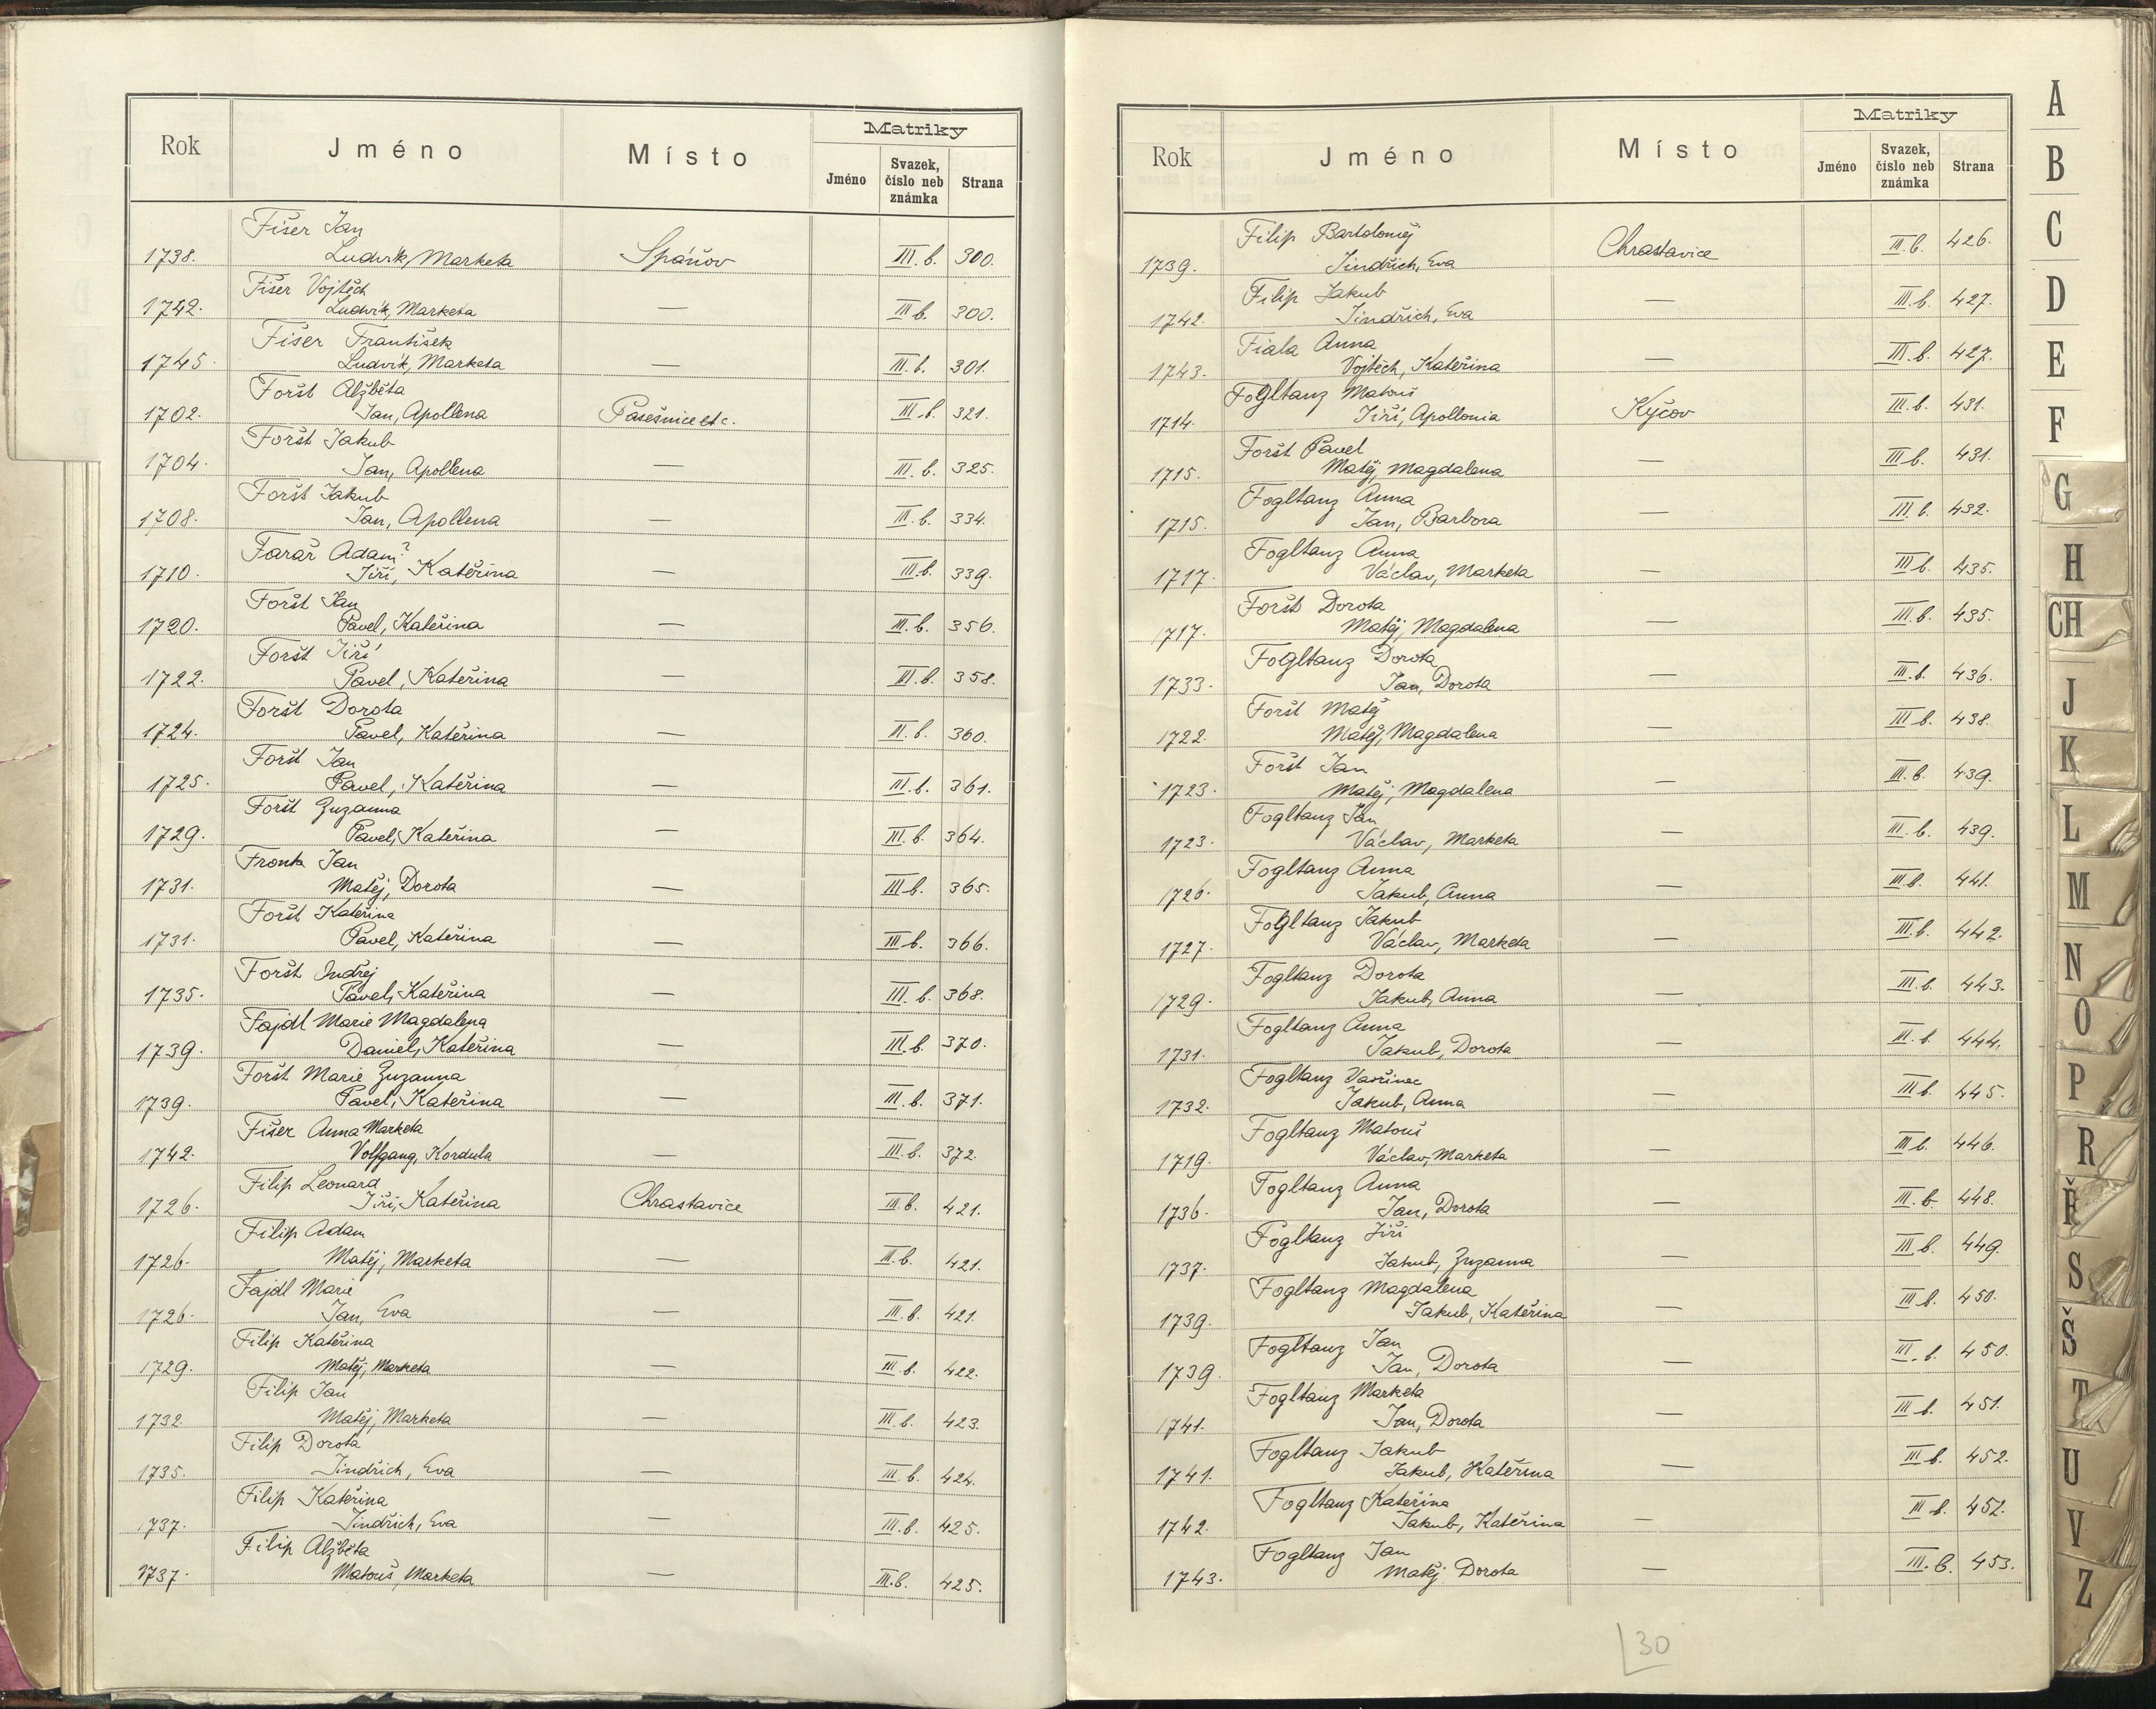 Rok Jméno Místo Matriky
Jméno Svazek, číslo neb známka Strana
Fišer Jan
1738. Ludvík, Marketa Spáňov III.b. 300.
Fišer Vojtěch
1742. Ludvík, Marketa — III b. 300.
Fišer František
1745. Ludvík, Marketa — III.b. 301.
Foršt Alžběta
1702. Jan, Apollena Pasešnice etc. III.b. 321.
Foršt Jakub
1704. Jan, Apollena — III.b. 325.
Foršt Jakub
1708. Jan, Apollena — III.b. 334.
Farař Adam?
1710. Jiří, Kateřina — III.b. 339.
Foršt Jan
1720. Pavel, Kateřina — III.b. 356.
Foršt Jiří
1722. Pavel, Kateřina — III.b. 358.
Foršt Dorota
1724. Pavel, Kateřina — III.b. 360.
Foršt Jan
1725. Pavel, Kateřina — III.b. 361.
Foršt Zuzanna
1729. Pavel, Kateřina — III.b. 364.
Fronta Jan
1731. Matěj, Dorota — III b. 365.
Foršt Kateřina
1731. Pavel, Kateřina — III b. 366.
Foršt Ondřej
1735. Pavel, Kateřina — III.b. 368.
Fajdl Marie Magdalena
1739. Daniel, Kateřina — III.b. 370.
Foršt Marie Zuzanna
1739. Pavel, Kateřina — III.b. 371.
Fišer Anna Marketa
1742. Volfgang, Kordula — III.b. 372.
Filip Leonard
1726. Jiří, Kateřina Chrastavice III.b. 421.
Filip Adam
1726. Matěj, Marketa — III.b. 421.
Fajdl Marie
1726. Jan, Eva — III.b. 421.
Filip Kateřina
1729. Matěj, Marketa — III.b. 422.
Filip Jan
1732. Matěj, Marketa — III.b. 423.
Filip Dorota
1735. Jindřich, Eva — III.b. 424.
Filip Kateřina
1737. Jindřich, Eva — III.b. 425.
Filip Alžběta
1737. Matouš, Marketa — III.b. 425.
Rok Jméno Místo Matriky
Jméno Svazek, číslo neb známka Strana
Filip Bartoloměj
1739. Jindřich, Eva Chrastavice III.b. 426.
Filip Jakub
1742. Jindřich, Eva — III.b. 427.
Fiala Anna
1743. Vojtěch, Kateřina — III b. 427.
Fogltanz Matouš
1714. Jiří, Apollonia Kyčov III.b. 431.
Foršt Pavel
1715. Matěj, Magdalena — III b. 431.
Fogltanz Anna
1715. Jan, Barbora — III b. 432.
Fogltanz Anna
1717. Václav, Marketa — III b. 435.
Foršt Dorota
1717. Matěj, Magdalena — III.b. 435.
Fogltanz Dorota
1733. Jan, Dorota — III.b. 436.
Foršt Matěj
1722. Matěj, Magdalena — III b. 438.
Foršt Jan
1723. Matěj, Magdalena — III.b. 439.
Fogltanz Jan
1723. Václav, Marketa — III.b. 439.
Fogltanz Anna
1726. Jakub, Anna — III.b. 441.
Fogltanz Jakub
1727. Václav, Marketa — III.b. 442.
Fogltanz Dorota
1729. Jakub, Anna — III.b. 443.
Fogltanz Anna
1731. Jakub, Dorota — III.b. 444.
Fogltanz Vavřinec
1732. Jakub, Anna — III b. 445.
Fogltanz Matouš
1719. Václav, Marketa — III b. 446.
Fogltanz Anna
1736. Jan, Dorota — III.b. 448.
Fogltanz Jiří
1737. Jakub, Zuzanna — III b. 449.
Fogltanz Magdalena
1739. Jakub, Kateřina — III b. 450.
Fogltanz Jan
1739. Jan, Dorota — III.b. 450.
Fogltanz Marketa
1741. Jan, Dorota — III b. 451.
Fogltanz Jakub
1741. Jakub, Kateřina — III b. 452.
Fogltanz Kateřina
1742. Jakub, Kateřina — III b. 452.
Fogltanz Jan
1743. Matěj Dorota — III.b. 453.
30
A
B
C
D
E
F
G
H
CH
J
K
L
M
N
O
P
R
Ř
S
Š
T
U
V
Z